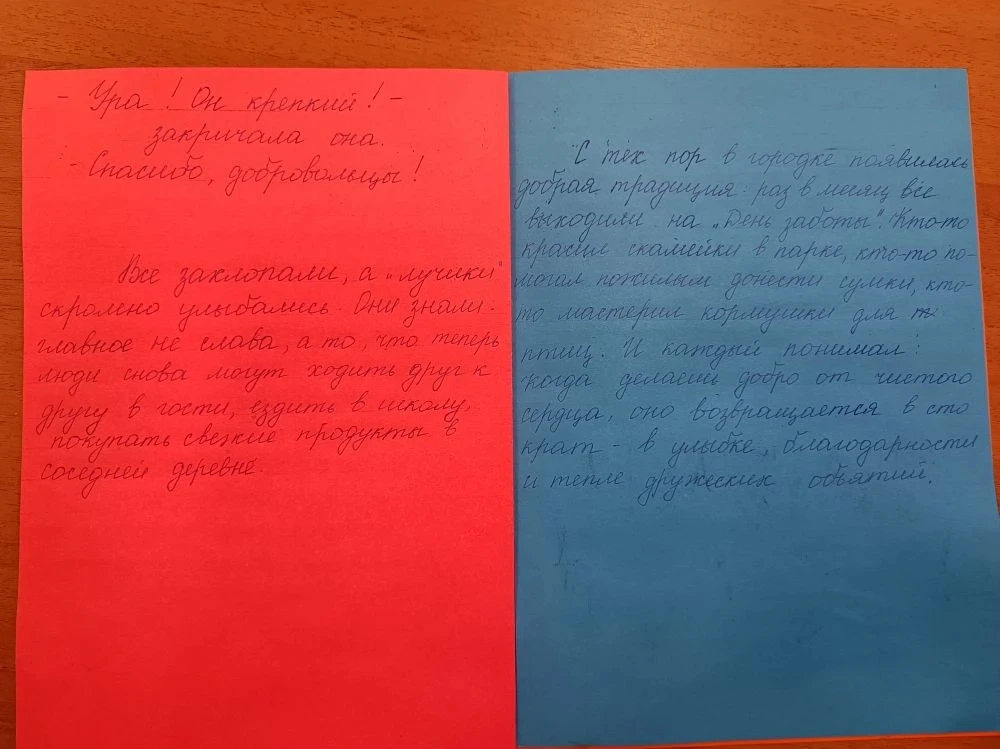 - Ура! Он крепкий! -
закричала она.
- Спасибо, добровольцы!
Все захлопали, а „лучики"
скромно улыбались. Они знали:
главное не слава, а то, что теперь
люди снова могут ходить друг к
другу в гости, ездить в школу,
покупать свежие продукты в
соседней деревне.
С тех пор в городке появилась
добрая традиция: раз в месяц все
выходили на „День заботы". Кто-то
красил скамейки в парке, кто-то по-
могал пожилым донести сумки, кто-
то мастерил кормушки для
птиц. И каждый понимал:
когда делаешь добро от чистого
сердца, оно возвращается в сто
крат - в улыбке, благодарности
и тепле дружеских объятий.